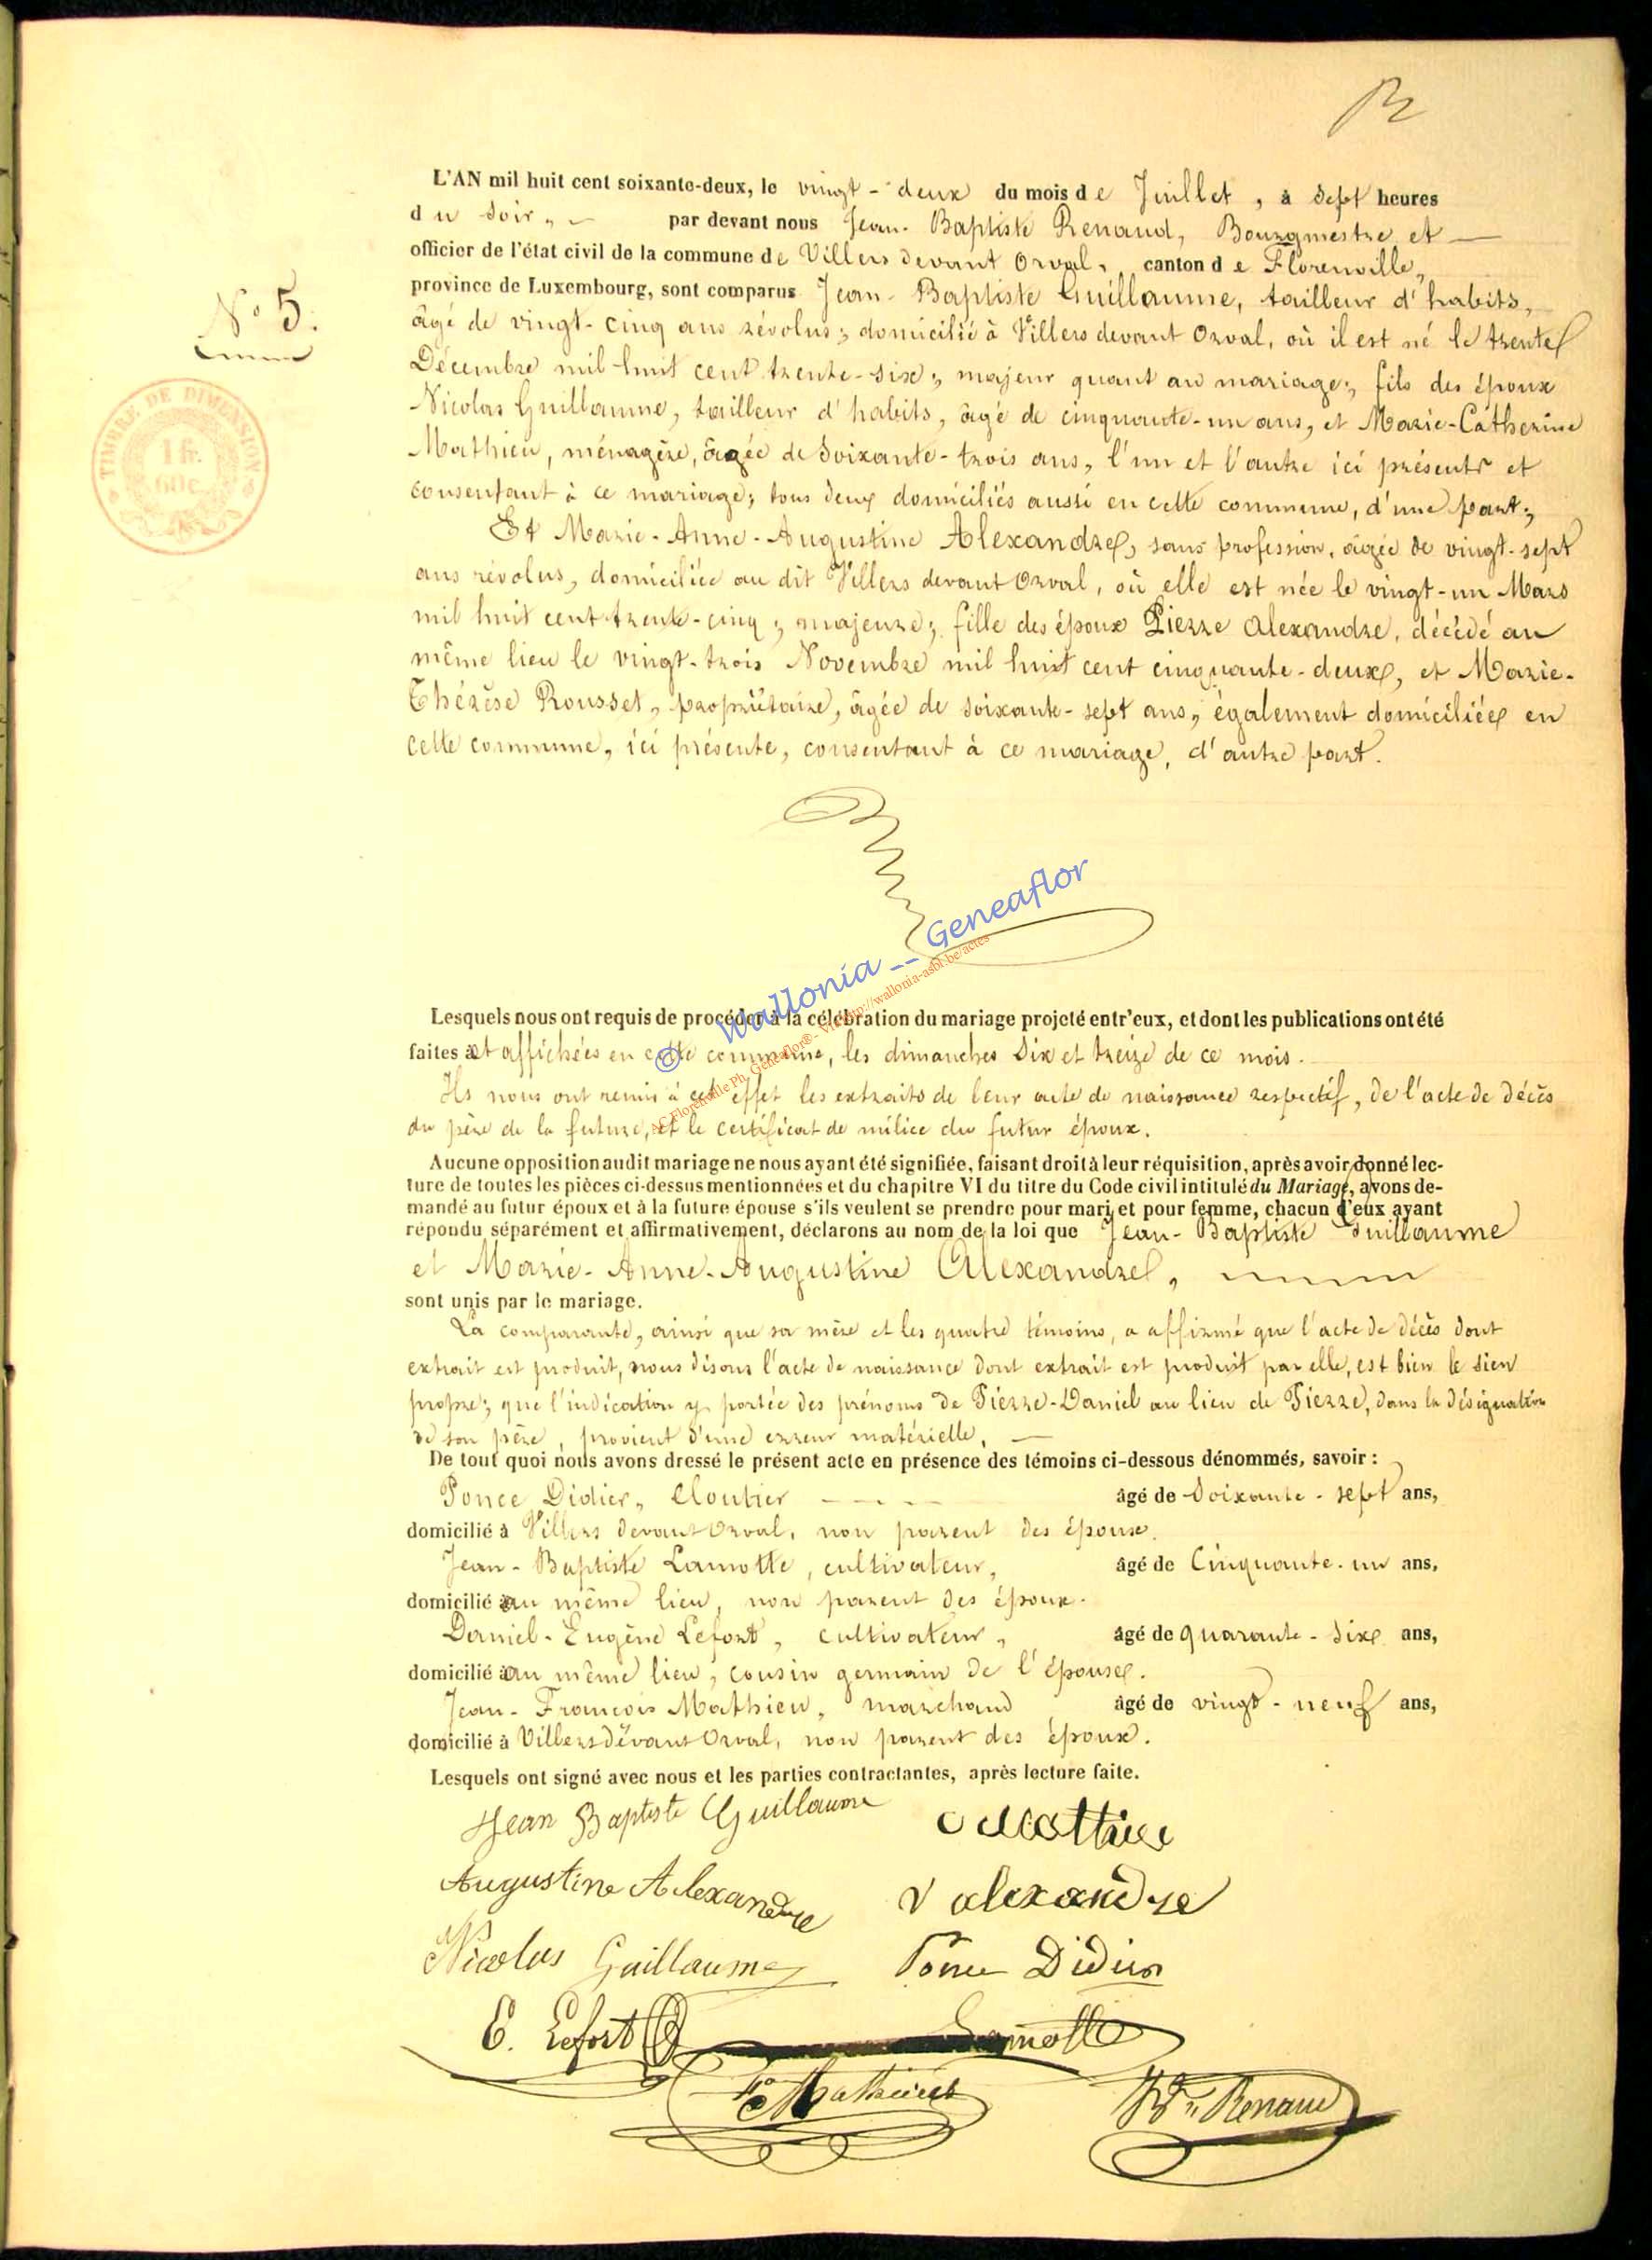 N° 5.
TIMBRE DE DIMENSION
1 fr.
60 c.
L'AN mil huit cent soixante-deux, le vingt-deux du mois de Juillet, à sept heures
du soir, par devant nous Jean-Baptiste Renaud, Bourgmestre et
officier de l'état civil de la commune de Villers devant Orval, canton de Florenville,
province de Luxembourg, sont comparus Jean-Baptiste Guillaume, tailleur d'habits,
âgé de vingt-cinq ans révolus; domicilié à Villers devant Orval, où il est né le trente
Décembre mil huit cent trente-six; majeur quant au mariage; fils des époux
Nicolas Guillaume, tailleur d'habits, âgé de cinquante-un ans, et Marie-Catherine
Mathieu, ménagère, âgée de soixante-trois ans, l'un et l'autre ici présents et
consentant à ce mariage; tous deux domiciliés aussi en cette commune, d'une part;
Et Marie-Anne-Augustine Alexandre, sans profession, âgée de vingt-sept
ans révolus, domiciliée au dit Villers devant Orval, où elle est née le vingt-un Mars
mil huit cent trente-cinq; majeure; fille des époux Pierre Alexandre, décédé au
même lieu le vingt-trois Novembre mil huit cent cinquante-deux, et Marie-
Thérèse Rousset, propriétaire, âgée de soixante-sept ans, également domiciliée en
cette commune, ici présente, consentant à ce mariage, d'autre part.
© Wallonia -- Geneaflor
AC Florenville Ph. Geneaflor® - Via http://wallonia-asbl.be/actes
Lesquels nous ont requis de procéder à la célébration du mariage projeté entr'eux, et dont les publications ont été
faites et affichées en cette commune, les dimanches six et treize de ce mois.
Ils nous ont remis à cet effet les extraits de leur acte de naissance respectif, de l'acte de décès
du père de la future, et le certificat de milice du futur époux.
Aucune opposition audit mariage ne nous ayant été signifiée, faisant droit à leur réquisition, après avoir donné lec-
ture de toutes les pièces ci-dessus mentionnées et du chapitre VI du titre du Code civil intitulé du Mariage, avons de-
mandé au futur époux et à la future épouse s'ils veulent se prendre pour mari et pour femme, chacun d'eux ayant
répondu séparément et affirmativement, déclarons au nom de la loi que Jean-Baptiste Guillaume
et Marie-Anne-Augustine Alexandre,
sont unis par le mariage.
La comparante, ainsi que sa mère et les quatre témoins, a affirmé que l'acte de décès dont
extrait est produit, nous disons l'acte de naissance dont extrait est produit par elle, est bien le sien
propre; que l'indication y portée des prénoms de Pierre-Daniel au lieu de Pierre, dans la désignation
de son père, provient d'une erreur matérielle.
De tout quoi nous avons dressé le présent acte en présence des témoins ci-dessous dénommés, savoir :
Ponce Didier, cloutier âgé de soixante-sept ans,
domicilié à Villers devant Orval, non parent des époux.
Jean-Baptiste Lamotte, cultivateur, âgé de cinquante-un ans,
domicilié au même lieu, non parent des époux.
Daniel-Eugène Lefort, cultivateur, âgé de quarante-six ans,
domicilié au même lieu, cousin germain de l'épouse.
Jean-François Mathieu, marchand âgé de vingt-neuf ans,
domicilié à Villers devant Orval, non parent des époux.
Lesquels ont signé avec nous et les parties contractantes, après lecture faite.
Jean Baptiste Guillaume
Augustine Alexandre alexandre
Nicolas Guillaume Ponce Didier
E. Lefort Lamotte
Mathieu Renaud